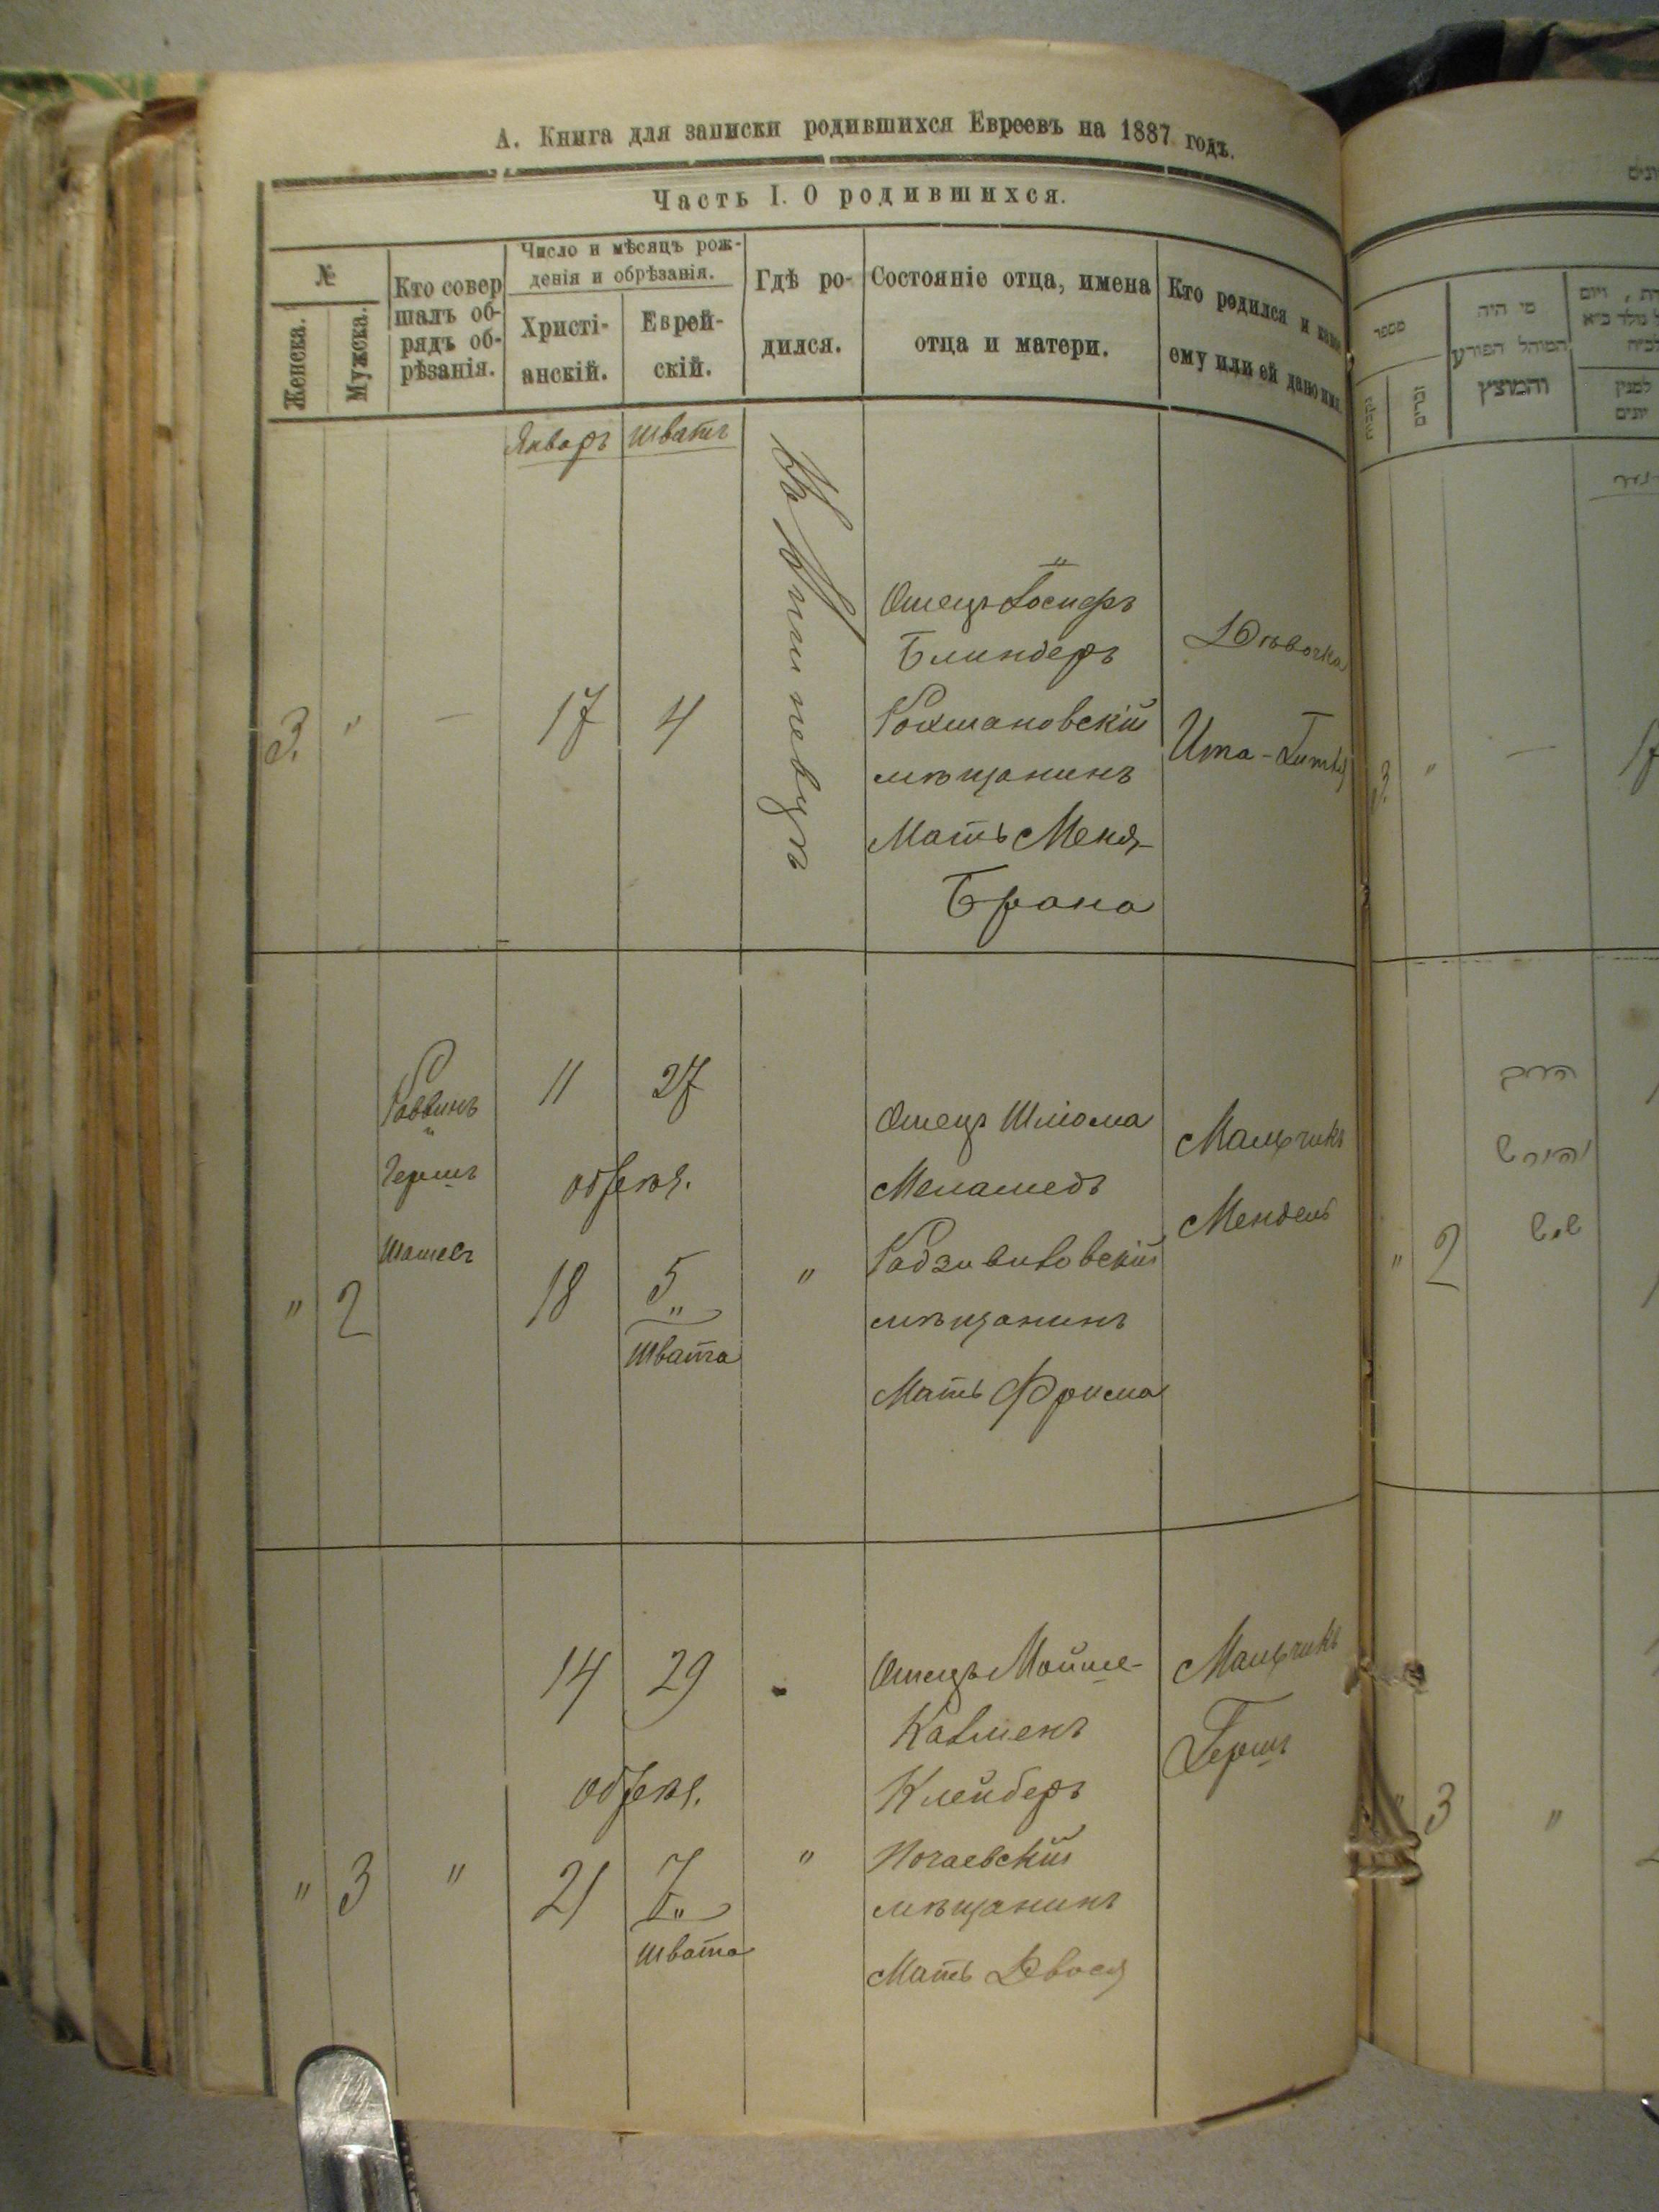 А. Книга для записки родившихся Евреевъ на 1887 годъ.
Часть I. О родившихся.
№
Женска.
Мужска.
Кто совер
шалъ об-
рядъ об-
рѣзанія.
Число и мѣсяцъ рож-
денія и обрѣзанія.
Христі-
анскій.
Еврей-
скій.
Гдѣ ро-
дился.
Состояніе отца, имена
отца и матери.
Кто родился и какое
ему или ей дано имя.
Январь
Шватъ
3.
"
—
17
4
Отецъ Іосифъ
Блиндеръ
мѣщанинъ
Мать Меня-
Брана
Дѣвочка
Ита-Гитля
"
2
Раввинъ
Гершъ
11
27
обрѣз.
18
5
Швата
"
Отецъ Шліома
Меламедъ
Радзивиловскій
мѣщанинъ
Мать Фрима
Мальчикъ
Мендель
"
3
"
14
29
обрѣз.
21
7
Швата
"
Отецъ Мойше-
Калменъ
Клейберъ
Почаевскій
мѣщанинъ
Мать Двося
Мальчикъ
Гершъ
מספר
וכרים
מי היה
המוהל הפורע
והמוצץ
3
"
—
17
"
2
הרב
3
"